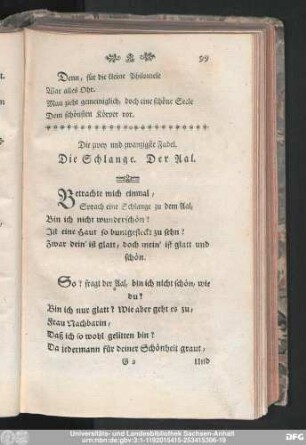 99
Denn, für die kleine Philomele
War alles Ohr.
Man zieht gemeiniglich, doch eine schöne Seele
Dem schönsten Körper vor.
Die zwey und zwanzigste Fabel.
Die Schlange. Der Aal.
Betrachte mich einmal,
Sprach eine Schlange zu dem Aal,
Bin ich nicht wunderschön?
Ist eine Haut so buntgefleckt zu sehn?
Zwar dein' ist glatt, doch mein' ist glatt und
schön.
So? fragt der Aal, bin ich nicht schön, wie
du?
Bin ich nur glatt? Wie aber geht es zu,
Frau Nachbarin,
Daß ich so wohl gelitten bin?
Da jedermann für deiner Schönheit graut,
G 2
Und
Universitäts- und Landesbibliothek Sachsen-Anhalt
urn:nbn:de:gbv:3:1-1192015415-253415306-19
DFG